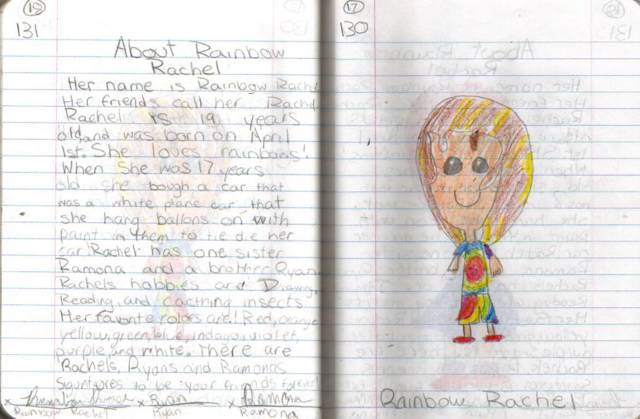 131
About Rainbow
Rachel
Her name is Rainbow Rachel
Her friends call her Rachel
Rachel is 19 years
old and was born on April
1st. She loves rainbows!
When She was 17 years
old she bough a car that
was a white plane car that
she hang ballons on with
paint in them to tie die her
car! Rachel has one sister
Ramona and a brother Ryan.
Rachels hobbies are Drawing,
Reading, and cacthing insects
Her favorite colors are! Red, orange
yellow, green, blue, indago, violet,
purple, and white. There are
Rachels, Ryans and Ramonas
Signtures to be your friends forever!
x x Ryan x Ramona
Rainbow Rachel Ryan Ramona
17
130
Rainbow Rachel